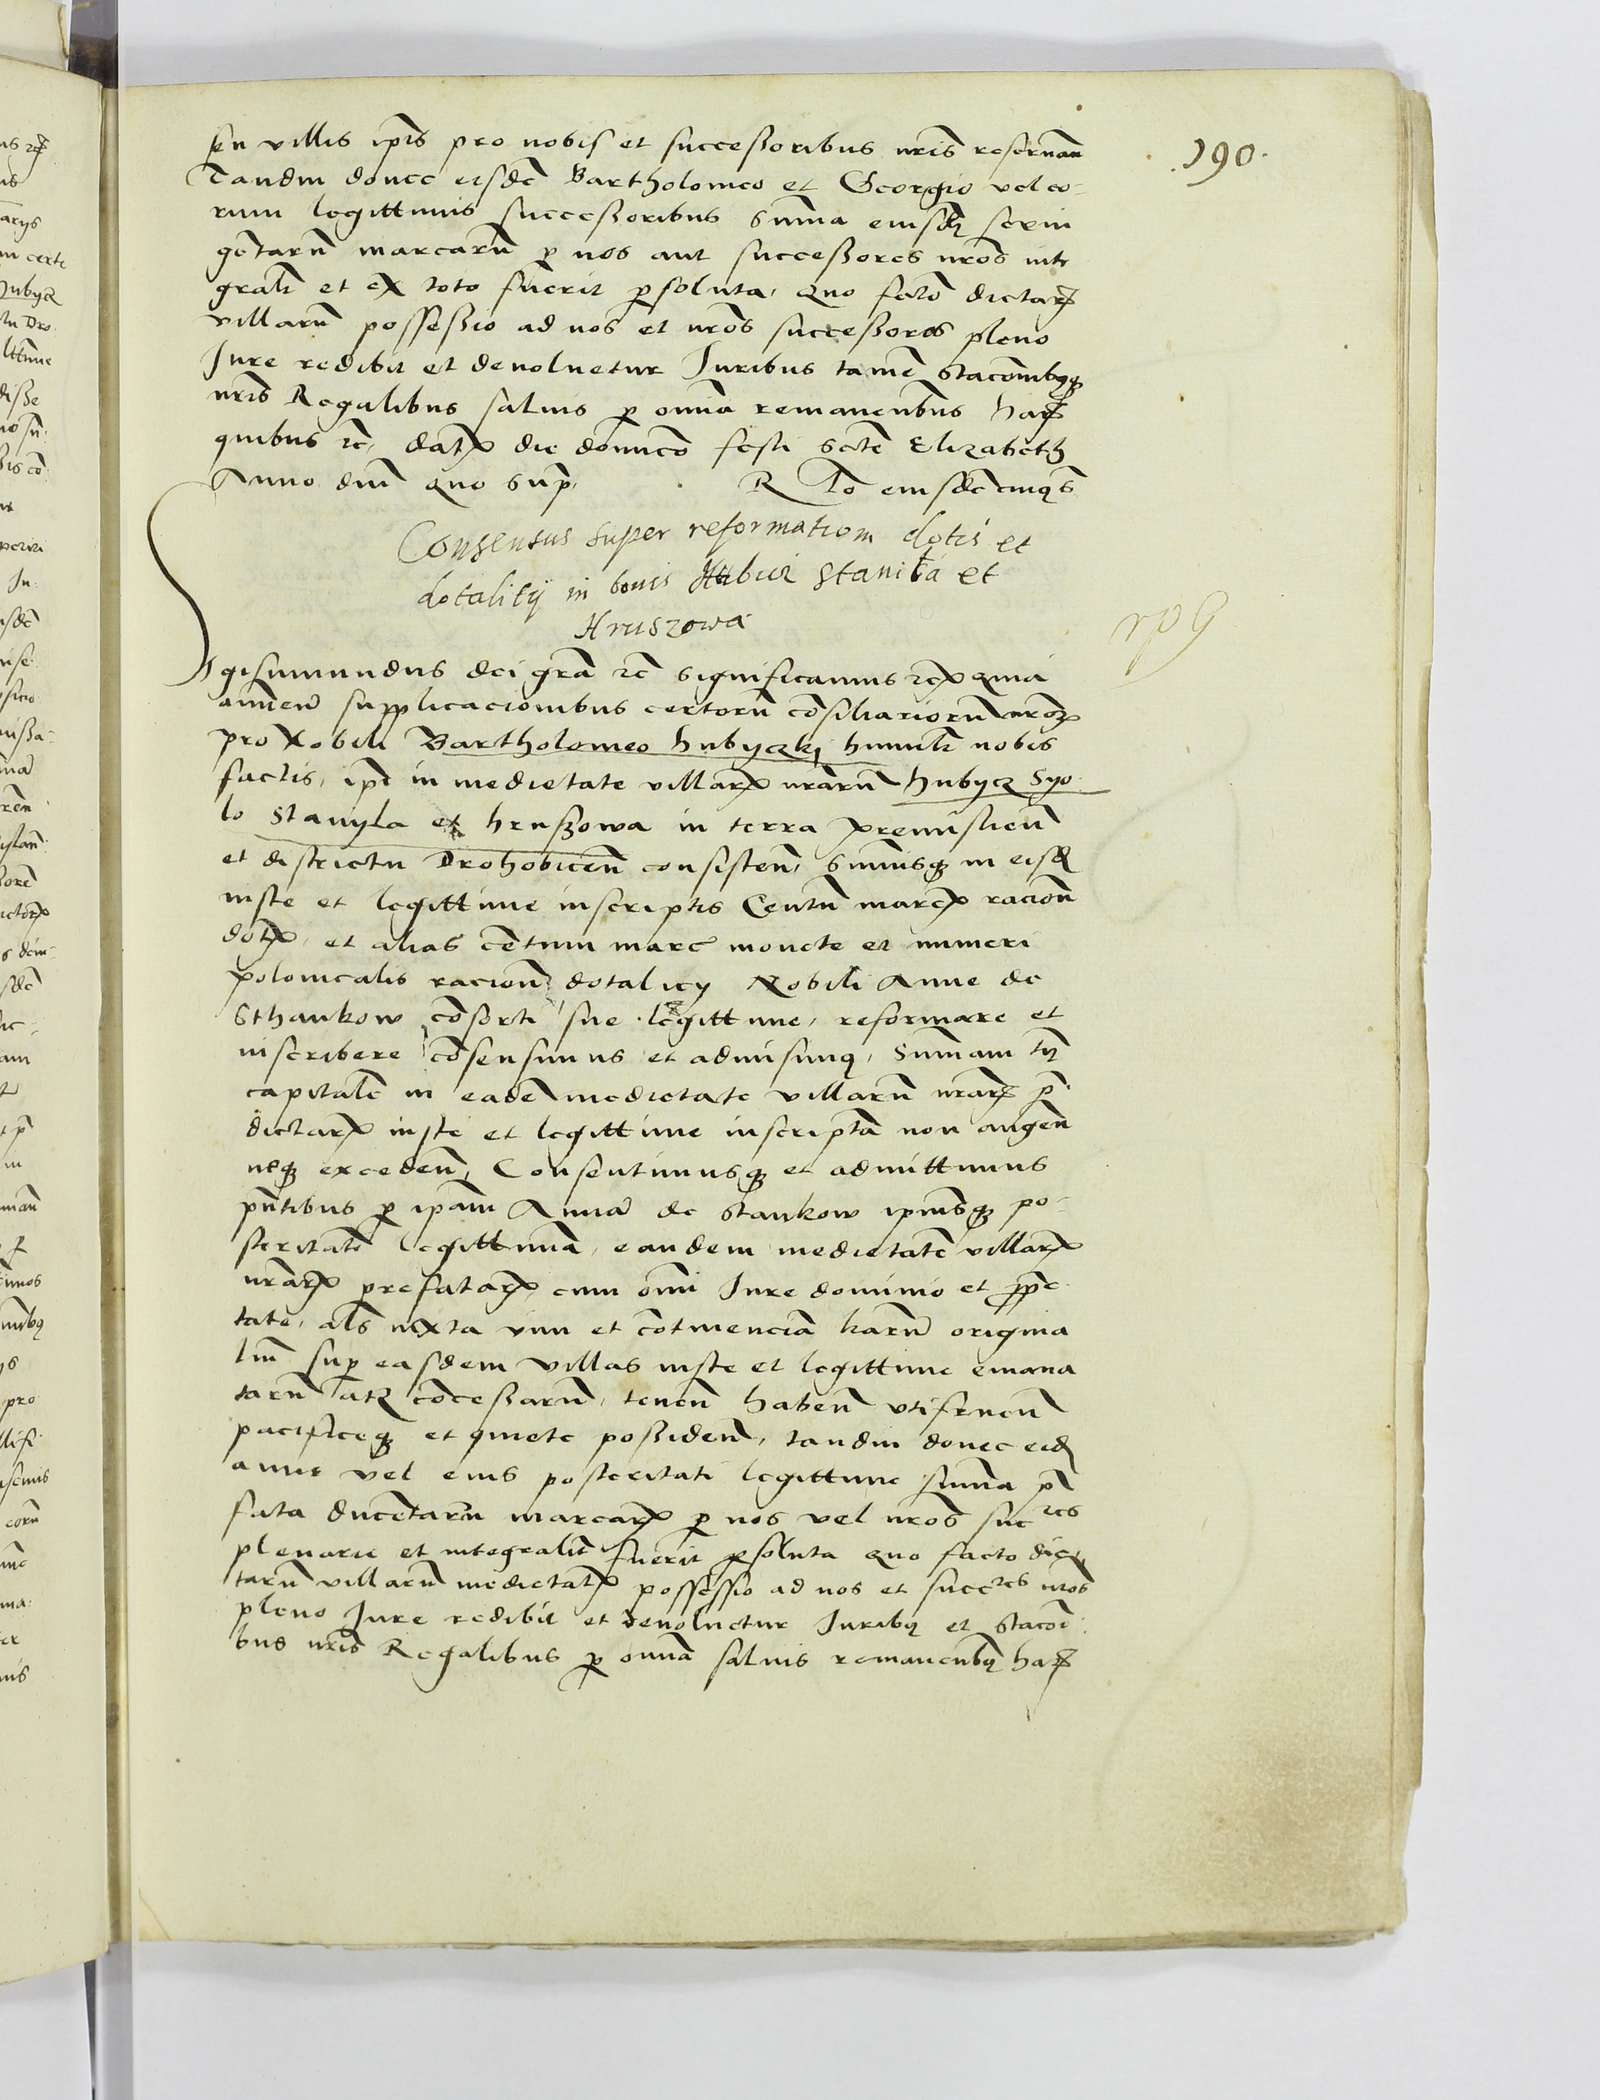 .190.
seu villis ipis pro nobis et successoribus nris reseruan
Tandiu donec eisdē Bartholomeo et Georgio vel eo-
rum legittimis successoribus summa eiusdē sexin
gētarū marcarū p nos aut successores nros inte
gralr et ex toto fuerit psoluta, quo fcto dictarꝝ
villarū possessio ad nos et nros successores pleno
Jure redibit et deuoluetur Juribus tamē stacōnibꝫqꝫ
nris Regalibus saluis p omnia remanentibus harꝝ
quibus rc, datꝝ die dominico festi scte Elizabeth
Anno dni quo supra. R
Consensus super reformationem dotis et
dotalitij in bonis Hubicz Stanila et
Hruszowa
Sigismundus dei gra rc significamus rcꝝ quia
annuen supplicacionibus certorū cōsiliariorū nroꝝ
pro Nobili Bartholomeo hubyczkj humilr nobis
factis, ipi in medietate villarꝝ nrarū hubycz Syo-
lo Stanyla et hruszowa in terra Premislien
et districtu Drohobicen consisten, summisqꝫ in eisdē
iuste et legittime inscriptis Centū marcꝝ racion
dotꝝ, et alias cētum marc monete et numeri
polonicalis racion dotalicy Nobili Anne de
Sthankow cōsorti sue legittime, reformare et
inscribere cōsensimus et admisimꝫ, summam tn
capitalē in eadē medietate villarū nrarꝝ p-
dictarꝝ iuste et legittime inscriptā non augen
neqꝫ exceden, Consentimusqꝫ et admittimus
pntibus p ipam Annā de Stankow ipiusqꝫ po-
steritatē legittimā, eandem medietatē villarꝝ
nrarꝝ prefatarꝝ cum omni Jure dominio et ppe
tate, als iuxta vim et cōtinenciā lrarū origina
liū sup easdem villas iuste et legittime emana
tarū atꝫ cōcessarū, tenen haben vtifruen
pacificeqꝫ et quiete possiden, tandiu donec eidē
anne vel eius posteritati legittime summa p-
fata ducētarū marcarꝝ p nos vel nros succres
plenarie et integralit fuerit psoluta quo facto dic
tarū villarū medietatꝝ possessio ad nos et succres nros
pleno Jure redibit et deuoluetur Juribꝫ et stacōi
bus nris Regalibus p omnia saluis remanentibꝫ harꝝ